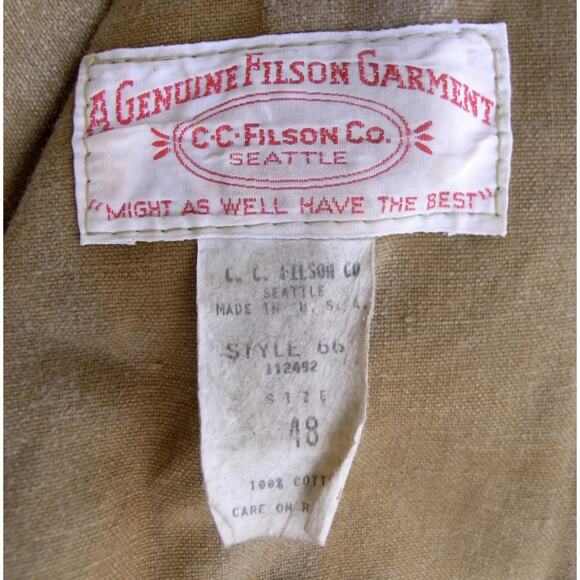 A GENUINE FILSON GARMENT
C·C·FILSON CO.
SEATTLE
"MIGHT AS WELL HAVE THE BEST"
C. C. FILSON CO
SEATTLE
MADE IN U. S. A.
STYLE 66
112492
SIZE
48
100% COTT
CARE ON R